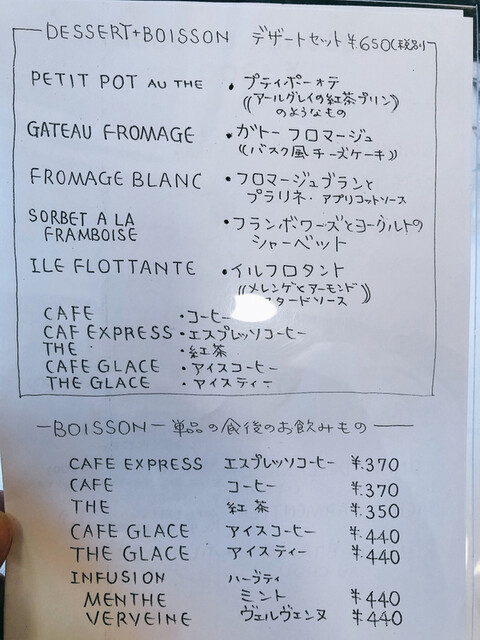 DESSERT+BOISSON デザートセット ¥.650(税別)
PETIT POT AU THE ・プティポーオテ
((アールグレイの紅茶プリン))
のようなもの
GATEAU FROMAGE ・ガトーフロマージュ
((バスク風チーズケーキ))
FROMAGE BLANC ・フロマージュブランと
プラリネ・アプリコットソース
SORBET A LA ・フランボワーズとヨーグルトの
FRAMBOISE シャーベット
ILE FLOTTANTE ・イルフロタント
((メレンゲとアーモンド
スタードソース))
CAFE ・コーヒー
CAF EXPRESS ・エスプレッソコーヒー
THE ・紅茶
CAFE GLACE ・アイスコーヒー
THE GLACE ・アイスティー
BOISSON 単品の食後のお飲みもの
CAFE EXPRESS エスプレッソコーヒー ¥.370
CAFE コーヒー ¥.370
THE 紅茶 ¥.350
CAFE GLACE アイスコーヒー ¥.440
THE GLACE アイスティー ¥.440
INFUSION ハーブティ
MENTHE ミント ¥440
VERVEINE ヴェルヴェンヌ ¥440